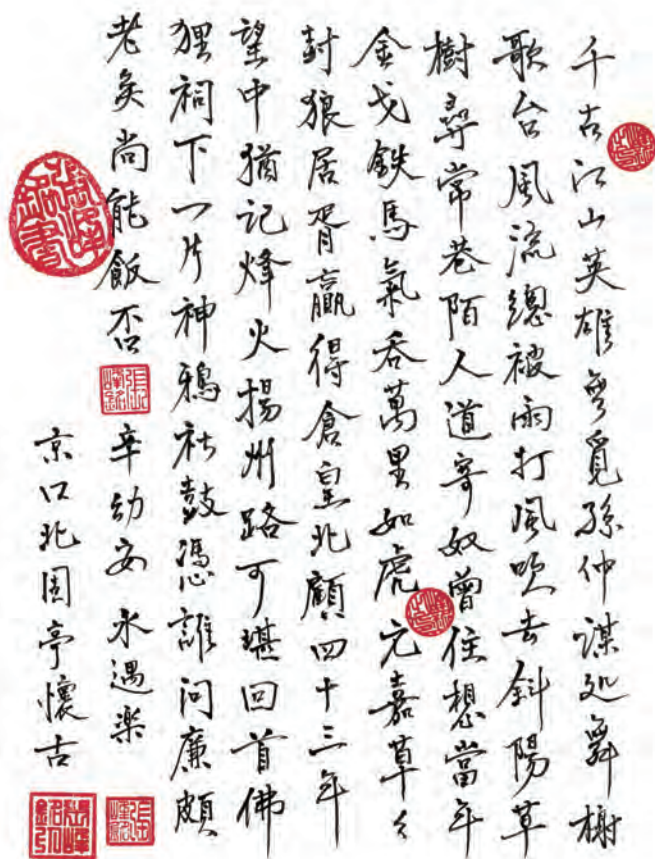 千古江山英雄無覓孫仲謀处舞榭
歌台風流總被雨打風吹去斜陽草
樹尋常巷陌人道寄奴曾住想當年
金戈鉄馬氣吞萬里如虎元嘉草々
封狼居胥贏得倉皇北顧四十三年
望中猶記烽火揚州路可堪回首佛
狸祠下一片神鴉社鼓憑誰問廉頗
老矣尚能飯否 辛幼安 永遇樂
京口北固亭懷古